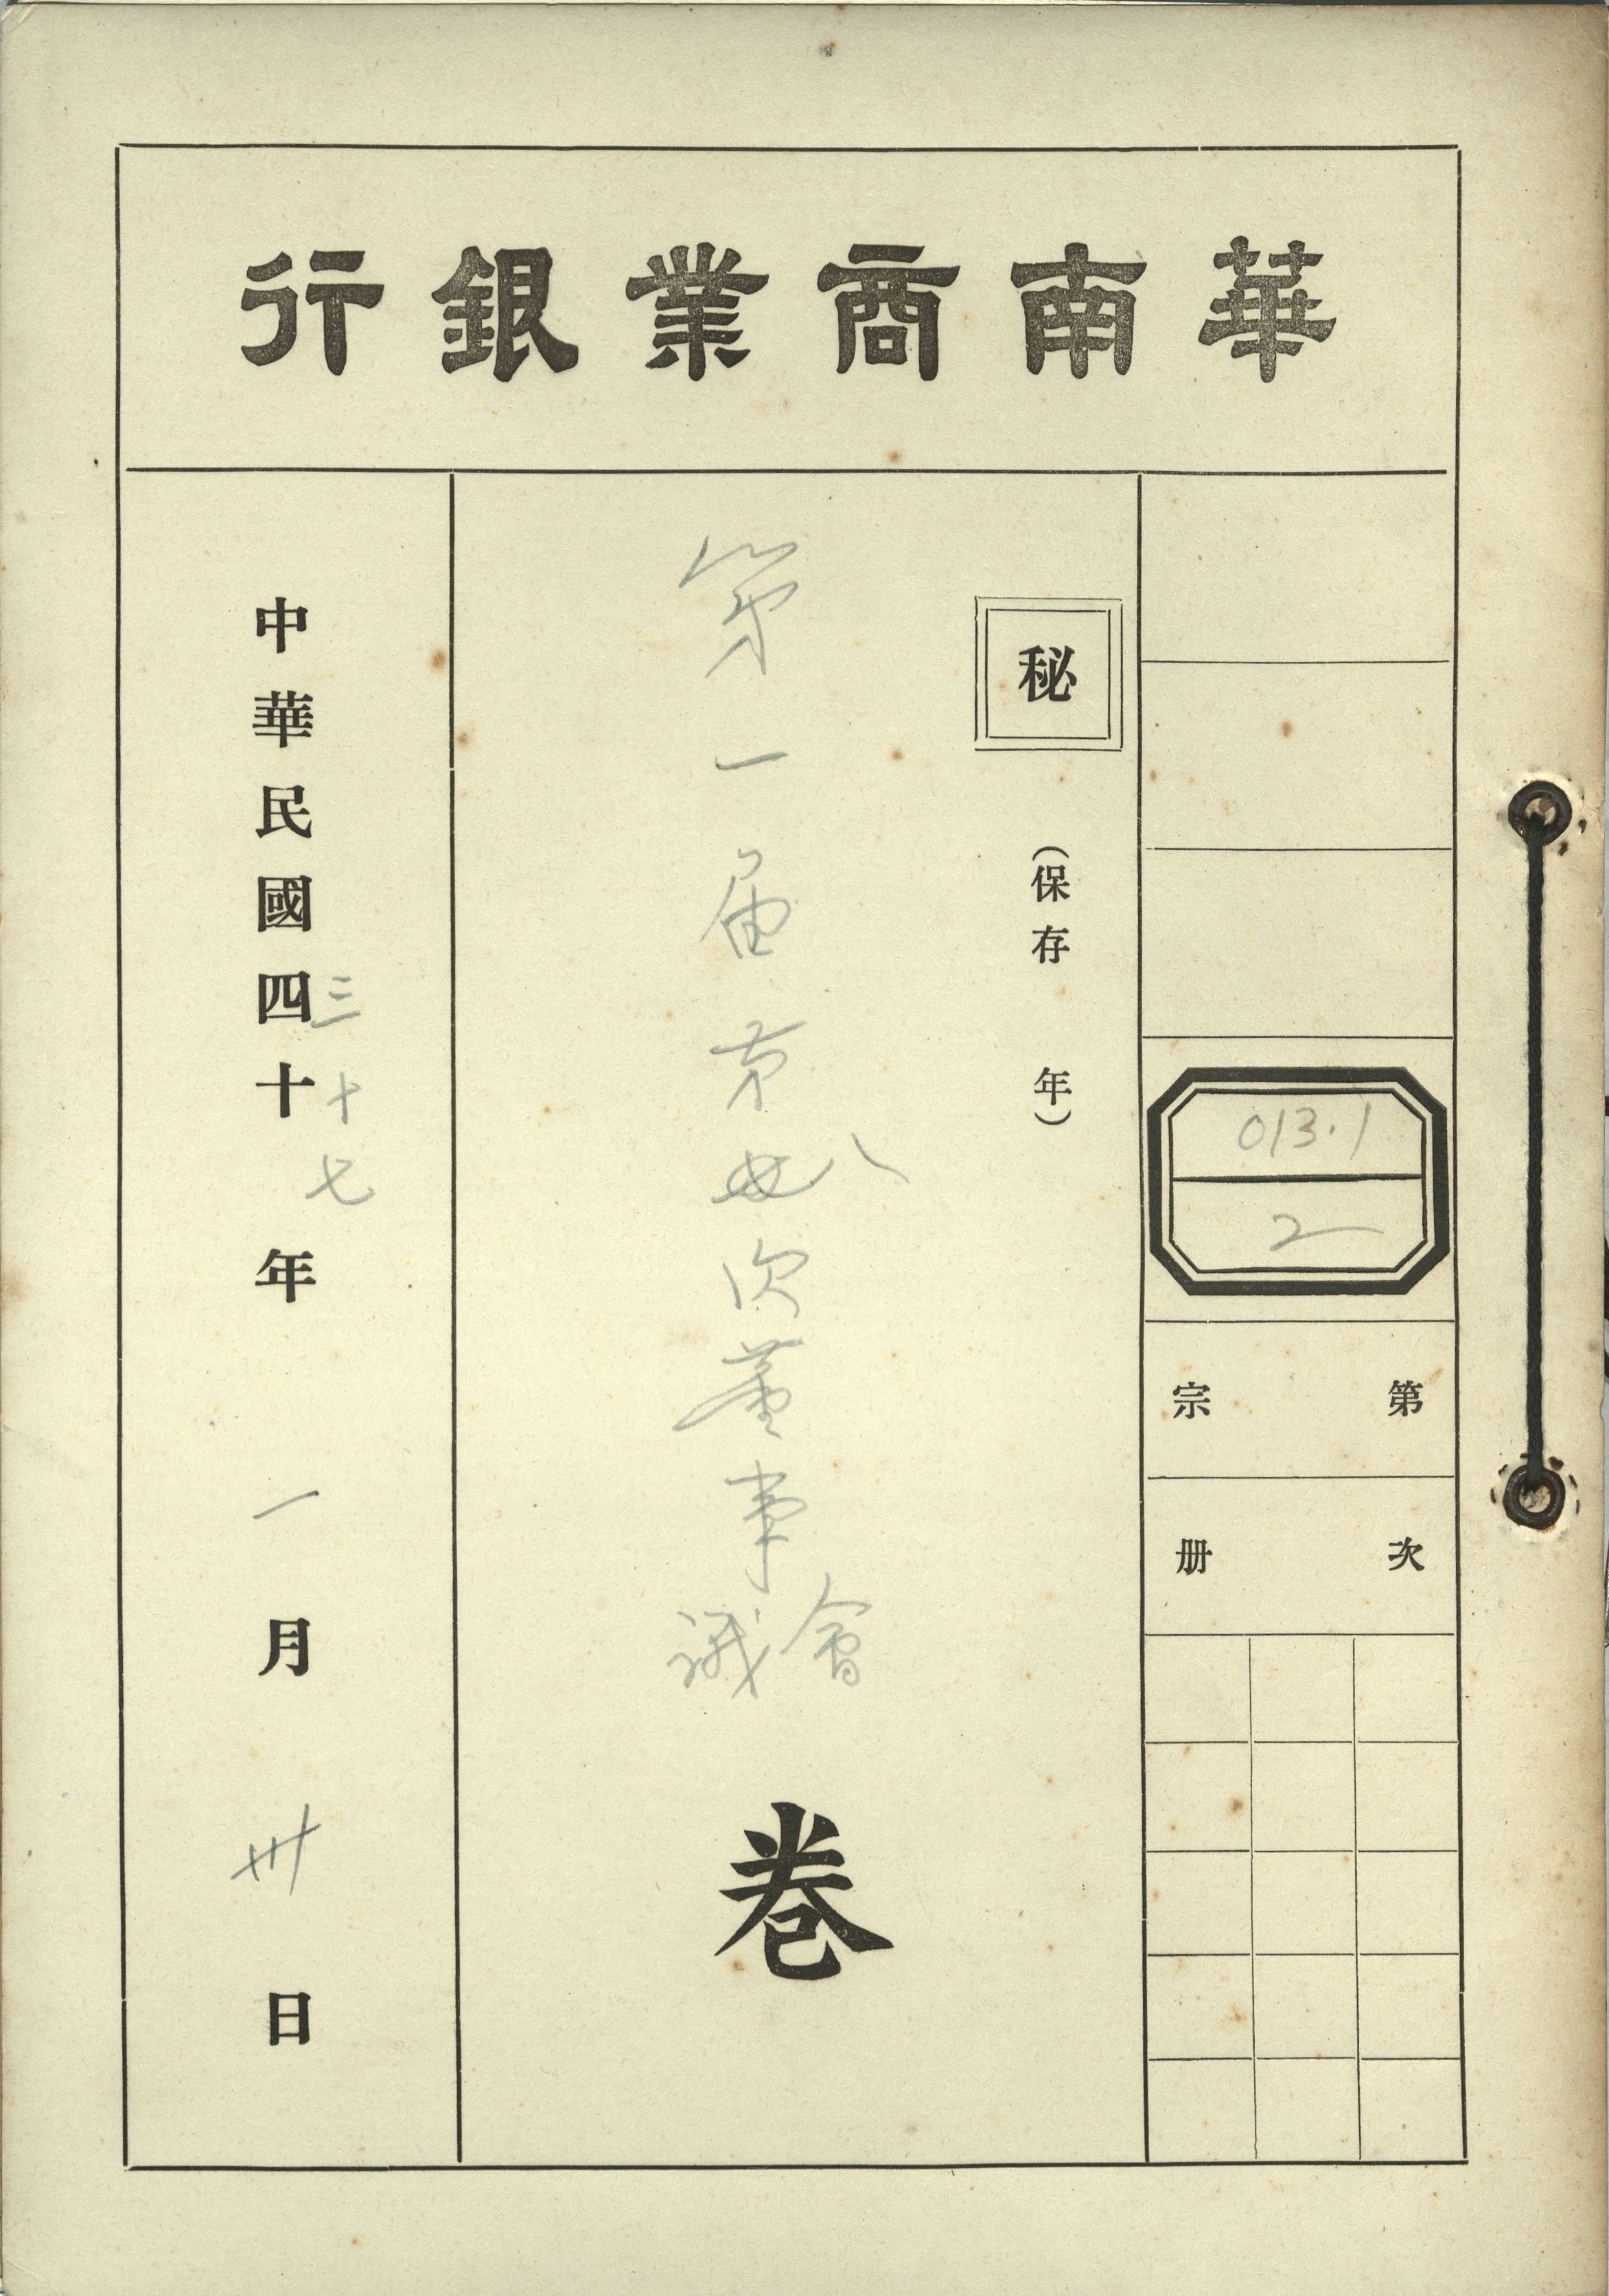 華南商業銀行
013.1
2
第 宗
次 册
秘
(保存 年)
第一届第八次董事會議
卷
中華民國四十年一月卅日
三十七